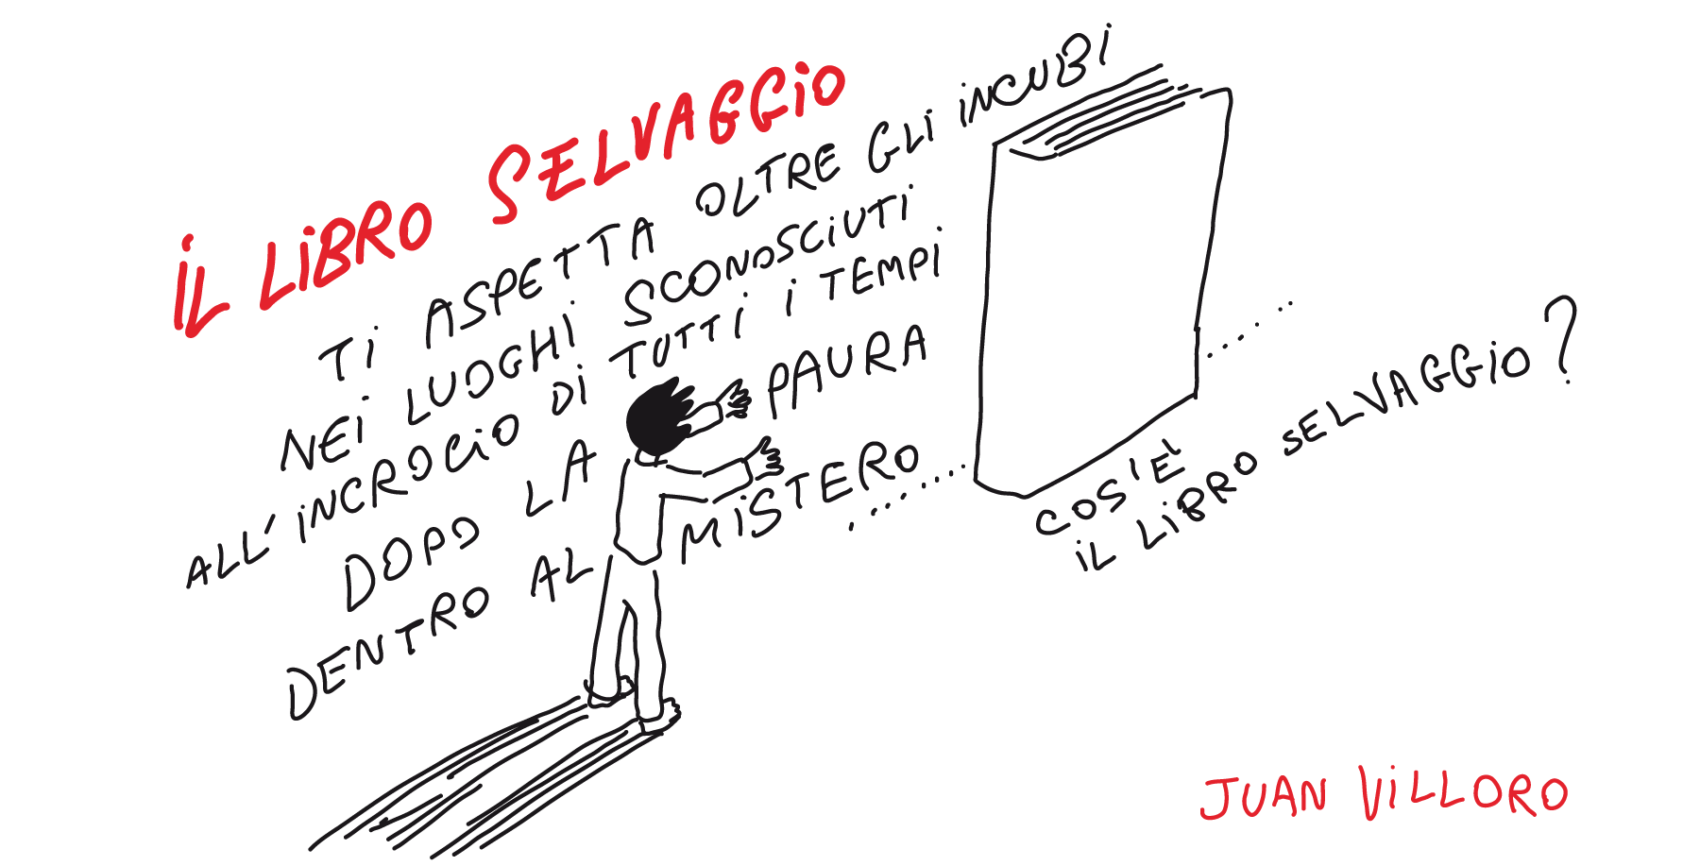 IL LIBRO SELVAGGIO
TI ASPETTA OLTRE GLI INCUBI
NEI LUOGHI SCONOSCIUTI
ALL'INCROCIO DI TUTTI I TEMPI
DOPO LA PAURA
DENTRO AL MISTERO ......
COS'E'
IL LIBRO SELVAGGIO?
JUAN VILLORO